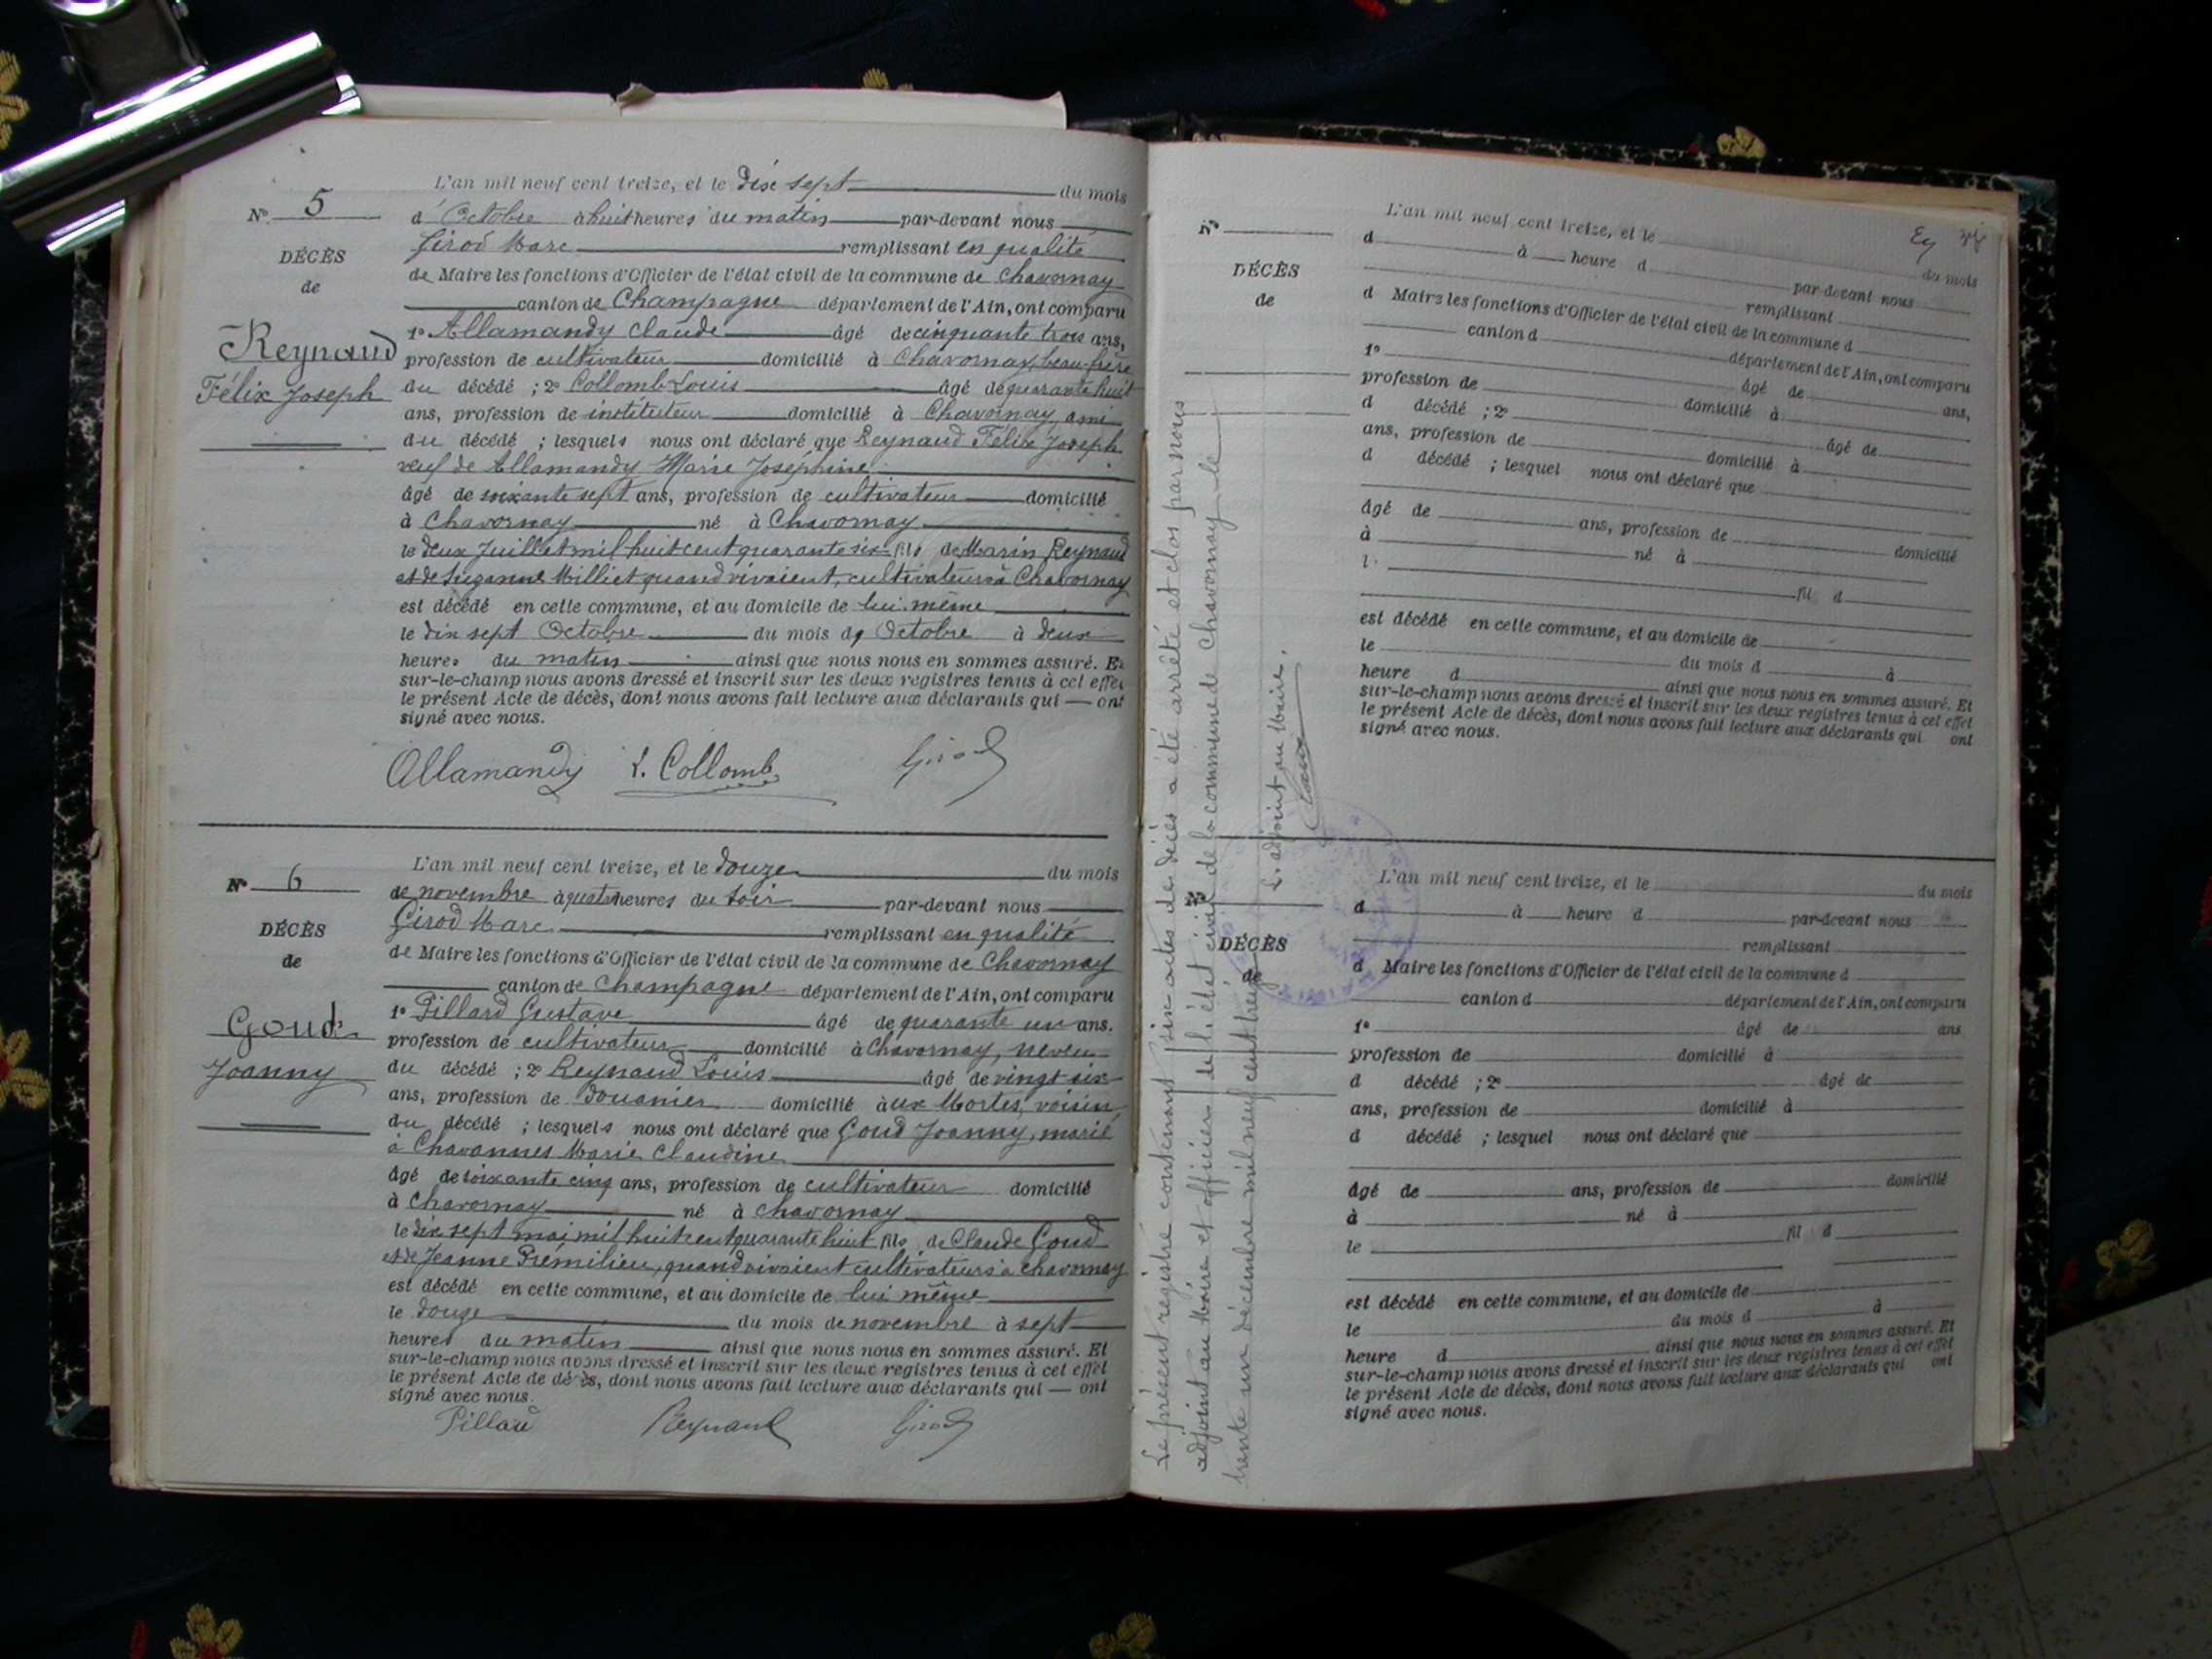 L'an mil neuf cent treize, et le dix sept du mois
N° 5
d'Octobre à huit heures du matin par-devant nous
Girod Marc remplissant en qualité
DÉCÈS
de
de Maire les fonctions d'Officier de l'état civil de la commune de Chavornay
canton de Champagne département de l'Ain, ont comparu
Reynaud
Félix Joseph
1° Allamandy Claude âgé de cinquante trois ans,
profession de cultivateur domicilié à Chavornay, beau-frère
du décédé ; 2° Collomb Louis âgé de quarante huit
ans, profession de instituteur domicilié à Chavornay, ami
du décédé ; lesquels nous ont déclaré que Reynaud Félix Joseph
veuf de Allamandy Marie Joséphine
âgé de soixante sept ans, profession de cultivateur domicilié
à Chavornay né à Chavornay
le deux Juillet mil huit cent quarante six fils de Marin Reynaud
et de Suzanne Milliet quand vivaient, cultivateurs à Chavornay
est décédé en cette commune, et au domicile de lui-même
le dix sept Octobre du mois d' Octobre à deux
heures du matin ainsi que nous nous en sommes assuré. Et
sur-le-champ nous avons dressé et inscrit sur les deux registres tenus à cet effet
le présent Acte de décès, dont nous avons fait lecture aux déclarants qui — ont
signé avec nous.
Allamandy L. Collomb Girod
L'an mil neuf cent treize, et le douze du mois
N° 6
de novembre à quatre heures du soir par-devant nous
Girod Marc remplissant en qualité
DÉCÈS
de
de Maire les fonctions d'Officier de l'état civil de la commune de Chavornay
canton de Champagne département de l'Ain, ont comparu
Goud
Joanny
1° Pillard Gustave âgé de quarante un ans.
profession de cultivateur domicilié à Chavornay, neveu
du décédé ; 2° Reynaud Louis âgé de vingt six
ans, profession de douanier domicilié aux Mortes, voisin
du décédé ; lesquels nous ont déclaré que Goud Joanny, marié
à Chavannes Marie Claudine
âgé de soixante cinq ans, profession de cultivateur domicilié
à Chavornay né à Chavornay
le dix sept mai mil huit cent quarante huit fils de Claude Goud
et de Jeanne Prémilieu, quand vivaient cultivateurs à Chavornay
est décédé en cette commune, et au domicile de lui même
le douze du mois de novembre à sept
heures du matin ainsi que nous nous en sommes assuré. Et
sur-le-champ nous avons dressé et inscrit sur les deux registres tenus à cet effet
le présent Acte de décès, dont nous avons fait lecture aux déclarants qui — ont
signé avec nous.
Pillard Reynaud Girod
Le présent registre contenant six actes de décès a été arrêté et clos par nous
adjoint au Maire et officier de l'état civil de la commune de Chavornay le
trente un décembre mil neuf cent treize
L'adjoint au Maire.
L'an mil neuf cent treize, et le du mois
N°
d à heure d par-devant nous
remplissant
DÉCÈS
de
d Maire les fonctions d'Officier de l'état civil de la commune d
canton d département de l'Ain, ont comparu
1° âgé de ans,
profession de domicilié à
d décédé ; 2° âgé de
ans, profession de domicilié à
d décédé ; lesquel nous ont déclaré que
âgé de ans, profession de domicilié
à né à
l
fil d
est décédé en cette commune, et au domicile de
le du mois d à
heure d ainsi que nous nous en sommes assuré. Et
sur-le-champ nous avons dressé et inscrit sur les deux registres tenus à cet effet
le présent Acte de décès, dont nous avons fait lecture aux déclarants qui ont
signé avec nous.
L'an mil neuf cent treize, et le du mois
N°
d à heure d par-devant nous
remplissant
DÉCÈS
de
d Maire les fonctions d'Officier de l'état civil de la commune d
canton d département de l'Ain, ont comparu
1° âgé de ans
profession de domicilié à
d décédé ; 2° âgé de
ans, profession de domicilié à
d décédé ; lesquel nous ont déclaré que
âgé de ans, profession de domicilié
à né à
le fil d
est décédé en cette commune, et au domicile de
le du mois d à
heure d ainsi que nous nous en sommes assuré. Et
sur-le-champ nous avons dressé et inscrit sur les deux registres tenus à cet effet
le présent Acte de décès, dont nous avons fait lecture aux déclarants qui ont
signé avec nous.